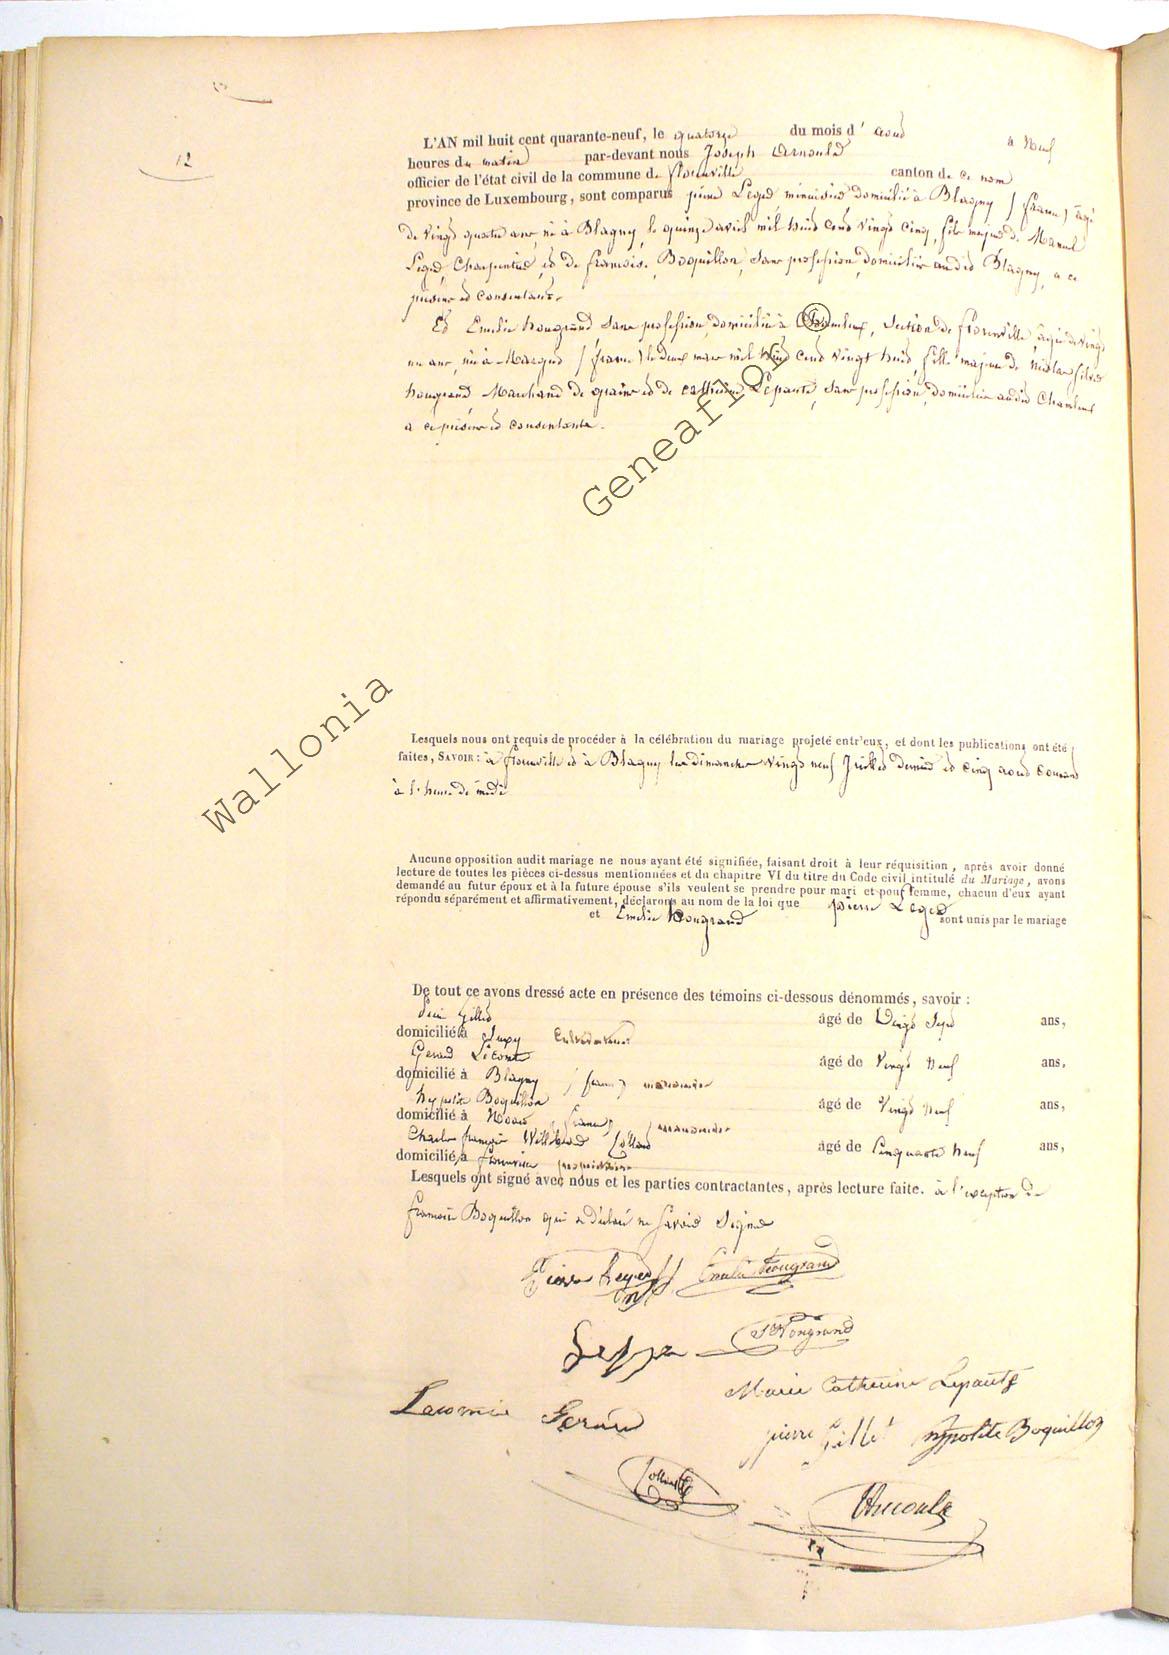 12
L'AN mil huit cent quarante-neuf, le quatorze du mois d' aout à neuf
heures du matin par-devant nous Joseph Arnould
officier de l'état civil de la commune de florenville canton de ce nom
province de Luxembourg, sont comparus pierre Leged menuisier domicilié à Blagny (france) agé
de vingt quatre ans, né à Blagny, le quinze avril mil huit cent vingt cinq, fils majeur de
Leged, Charpentier, et de francoise Boquillon, sans profession, domiciliés audit Blagny, a ce
présents et consentants.
Et Emelie hougrand sans profession domiciliée à Chameleux, section de florenville, agée de vingt
un ans, née à Margut (france) le deux mars mil huit cent vingt huit, fille majeure de
hougrand Marchand de grains et de catherine Lepante, sans profession, domiciliés audit Chameleux
a ce présents et consentants.
Geneaflor
Wallonia
Lesquels nous ont requis de procéder à la célébration du mariage projeté entr'eux, et dont les publications ont été
faites, SAVOIR : à florenville et à Blagny les dimanches vingt neuf Juillet dernier et cinq aout courant
à l'heure de midi
Aucune opposition audit mariage ne nous ayant été signifiée, faisant droit à leur réquisition, après avoir donné
lecture de toutes les pièces ci-dessus mentionnées et du chapitre VI du titre du Code civil intitulé du Mariage, avons
demandé au futur époux et à la future épouse s'ils veulent se prendre pour mari et pour femme, chacun d'eux ayant
répondu séparément et affirmativement, déclarons au nom de la loi que pierre Leged
et Emelie hougrand sont unis par le mariage
De tout ce avons dressé acte en présence des témoins ci-dessous dénommés, savoir :
Gillet âgé de Vingt Sept ans,
domicilié à
Gerard Lecomte âgé de Vingt neuf ans,
domicilié à Blagny (france) manouvrier
hypolite Boquillon âgé de Vingt neuf ans,
domicilié à france manouvrier
Charles françois Willibrord Collard âgé de Cinquante neuf ans,
domicilié à florenville propriétaire
Lesquels ont signé avec nous et les parties contractantes, après lecture faite. à l'exception de
francoise Boquillon qui a déclaré ne savoir Signer
Pierre Leged Emelie Hougrand
Hougrand
Marie Catherine Lepante
Lecomte Gerard pierre Gillet hypolite Boquillon
Collard Arnould